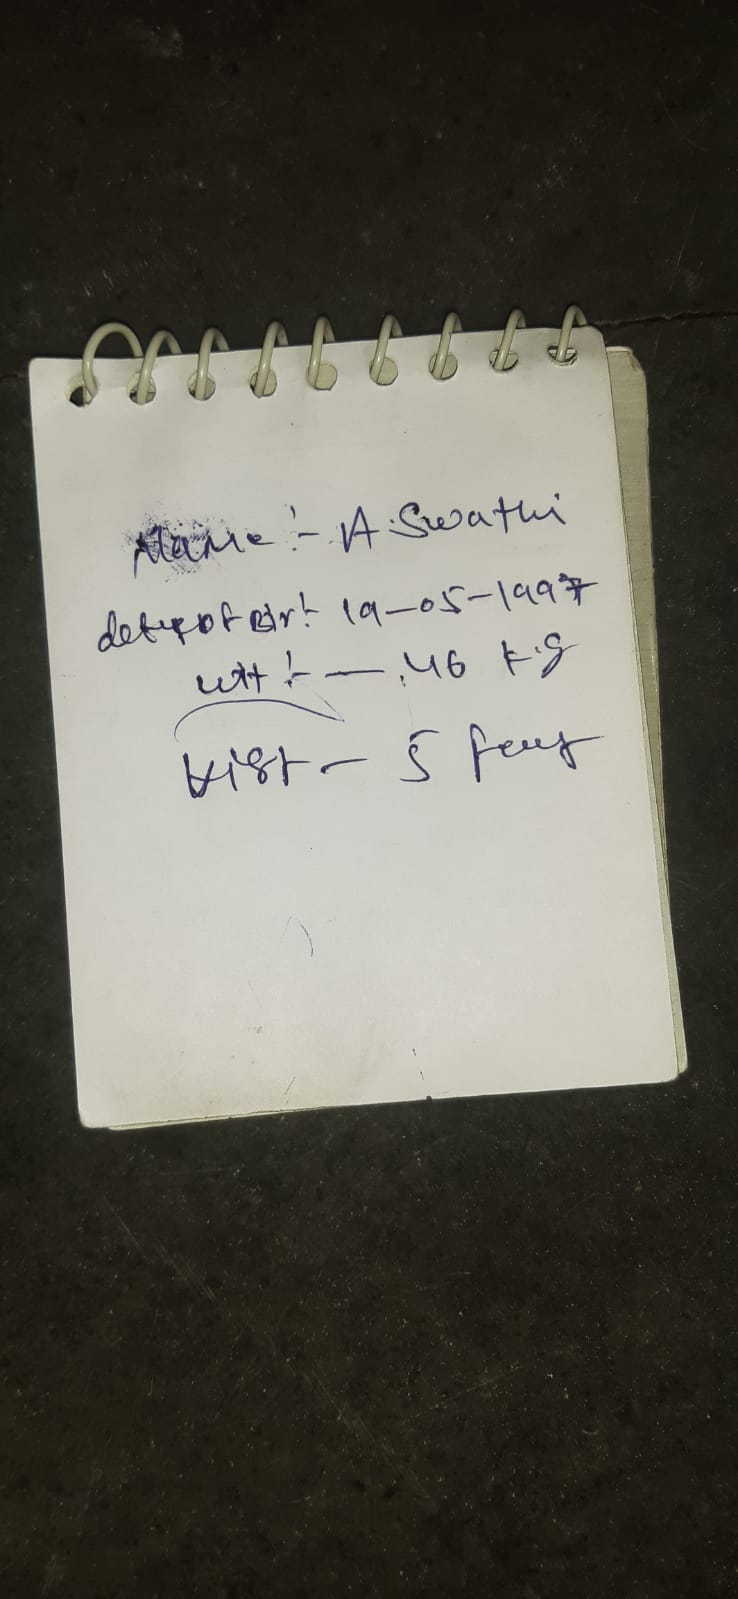 Name :- A. Swathi
date of Bir:- 19-05-1997
wtt :- — 46 K.g
High - 5 feet